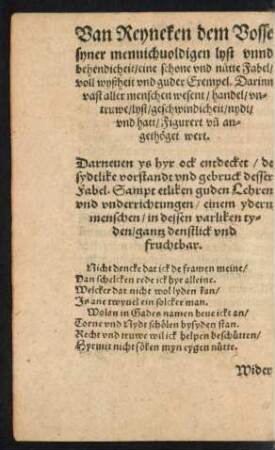 Van Reyneken dem Vosse
syner mennichuoldigen lyst vnnd
behendicheit/eine schone vnd nütte Fabel/
voll wyßheit vnd guder Exempel. Darinn
vast aller menschen wesent/handel/vn-
truwe/lyst/geschwindicheit/nydt/
vnd hatt/Figurert vn̄ an-
gethöget wert.
Darneuen ys hyr ock entdecket/de
sydtlike vorstandt vnd gebruck desser
Fabel. Sampt etliken guden Lehren
vnd vnderrichtungen/einem ydern
menschen/in dessen varliken ty-
den/gantz denstlick vnd
fruchtbar.
Nicht dencke dat ick de framen meine/
Van schelcken rede ick hyr alleine.
Welcker dat nicht wol lyden kan/
Is ane twyuel ein solcker man.
Wolan in Gades namen heue ickt an/
Torne vnd Nydt schölen bysyden stan.
Recht vnd truwe wil ick helpen beschütten/
Hyrmit nicht söken myn eygen nütte.
Wider